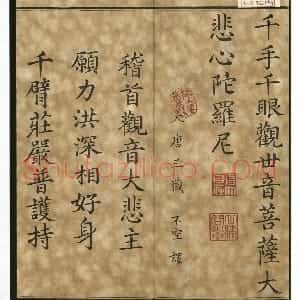 千手千眼觀世音菩薩大
悲心陀羅尼
唐三藏 不空 譯
稽首觀音大悲主
願力洪深相好身
千臂莊嚴普護持